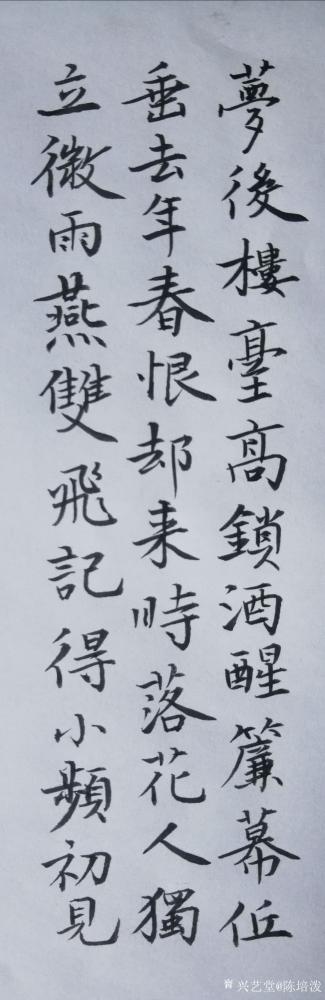 夢後樓臺高鎖酒醒簾幕低
垂去年春恨却来時落花人獨
立微雨燕雙飛記得小頻初見
兴艺堂@陈培泼